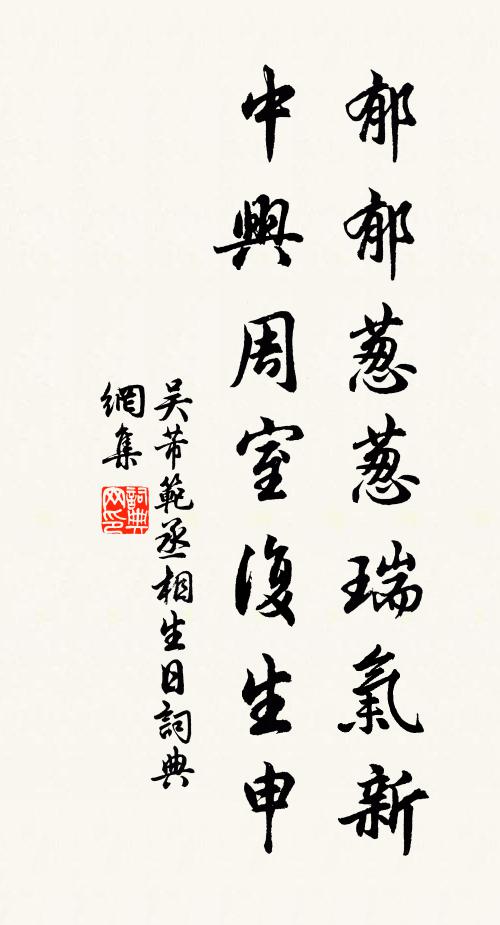 郁郁葱葱瑞氣新
中興周室復生申
吴芾範丞相生日詞典
網集
詞典網印